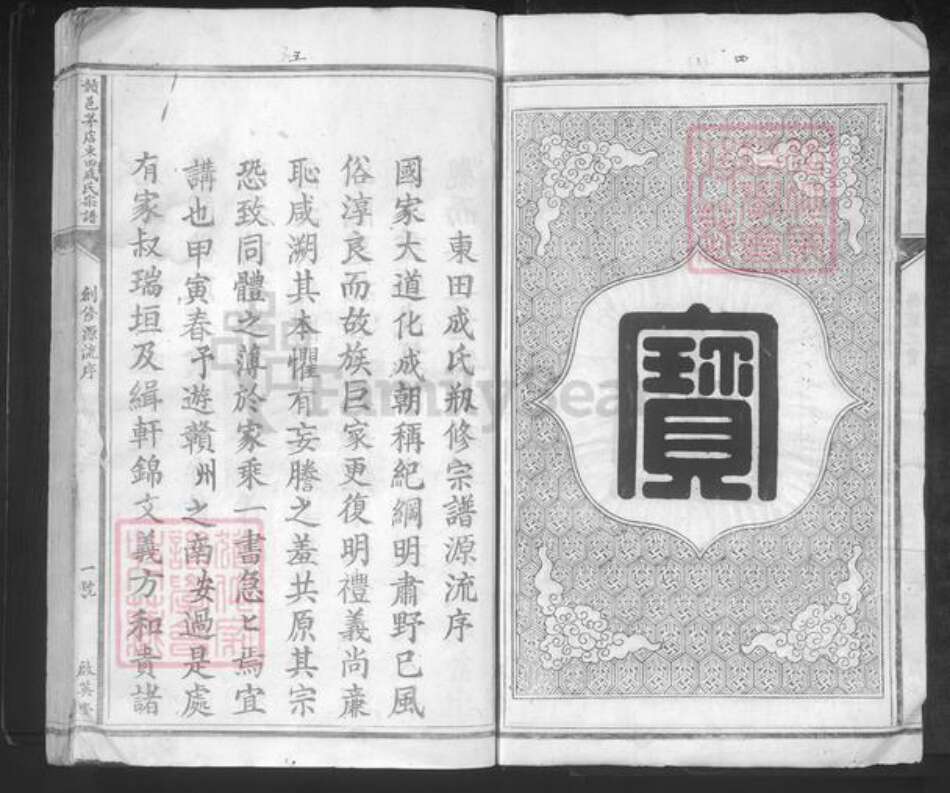 四
寳
五
東田成氏剏修宗譜源流序
國家大道化成朝稱紀綱明肅野已風
俗淳良而故族巨家更復明禮義尚廉
恥咸溯其本懼有妄謄之羞共原其宗
恐致同體之薄於家乘一書急匕焉宜
講也甲寅春予遊贛州之南安過是處
有家叔瑞垣及緝軒錦文義方和貴諸
邑茅店東田成氏宗譜
創修源流序
一號
啟英堂
FamilySearch